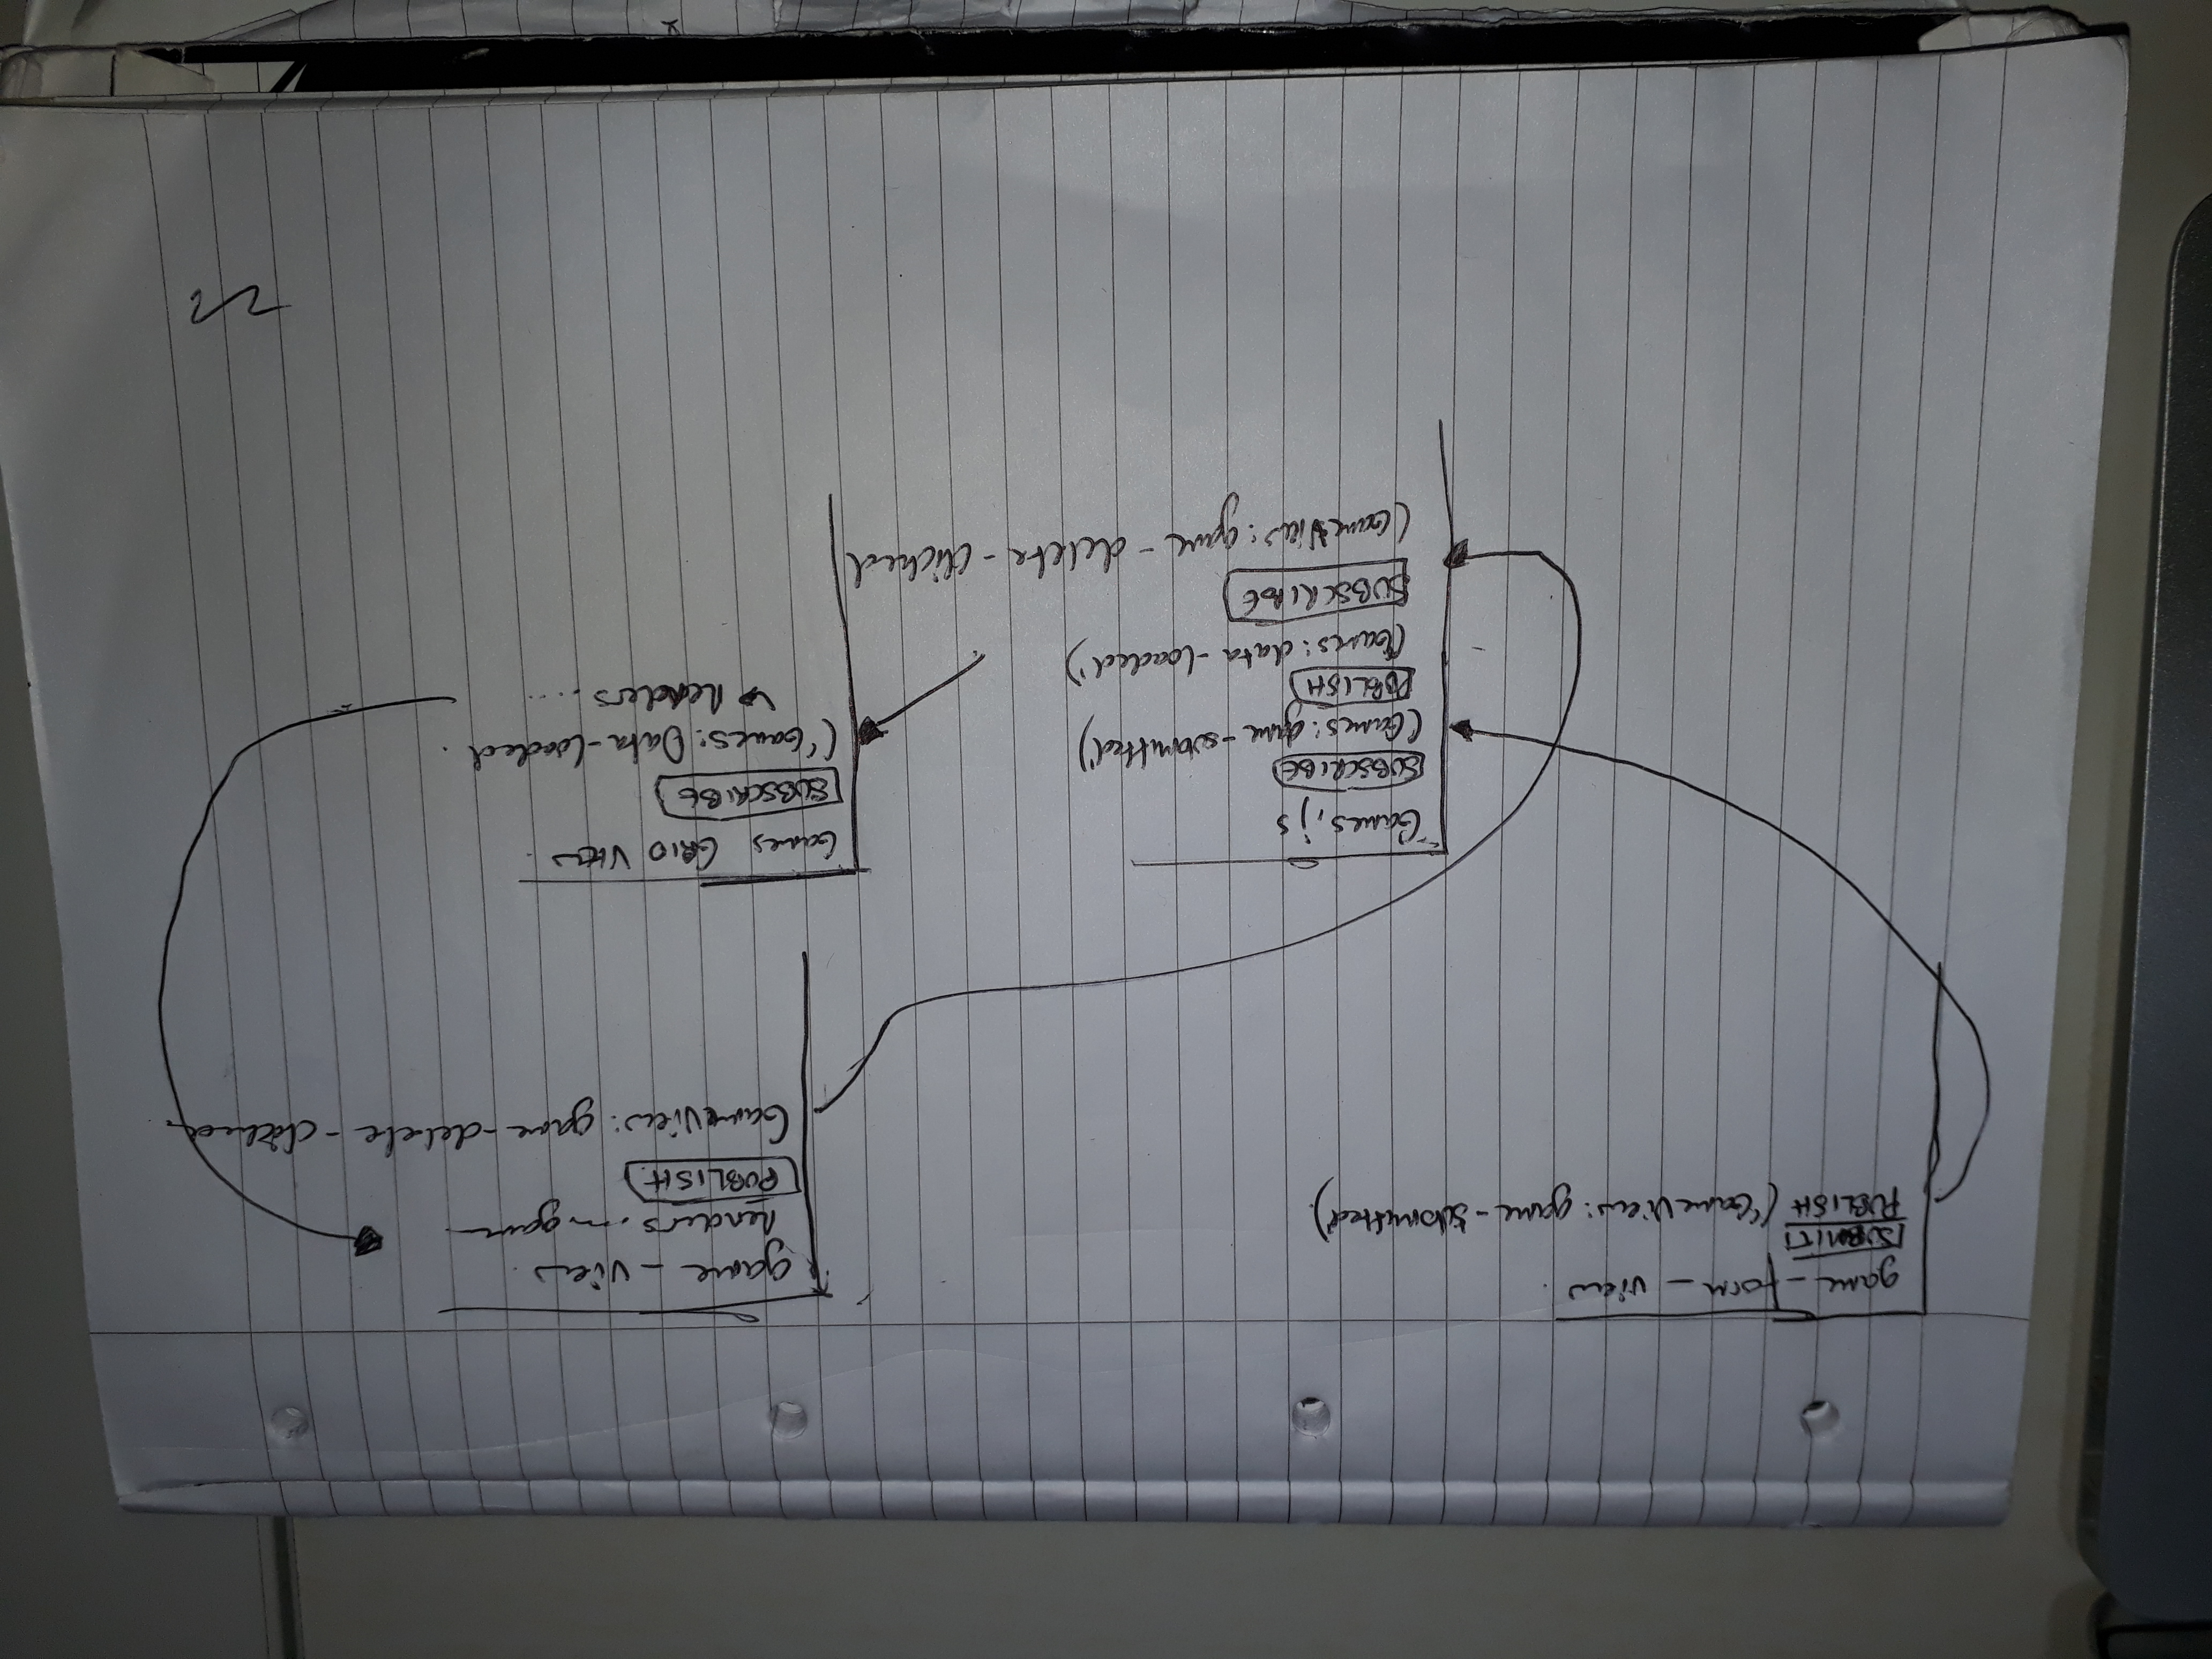 game_form_view
SUBMIT
PUBLISH ('GameView: game-submitted')
game_view
Renders.... game
PUBLISH
GameView: game-delete-clicked
Games.js
SUBSCRIBE
(Games: game-submitted')
PUBLISH
(Games: data-loaded')
SUBSCRIBE
(GameView: game-delete-clicked
Games GRID VIEW
SUBSCRIBE
('Games: Data-loaded.
Renders....